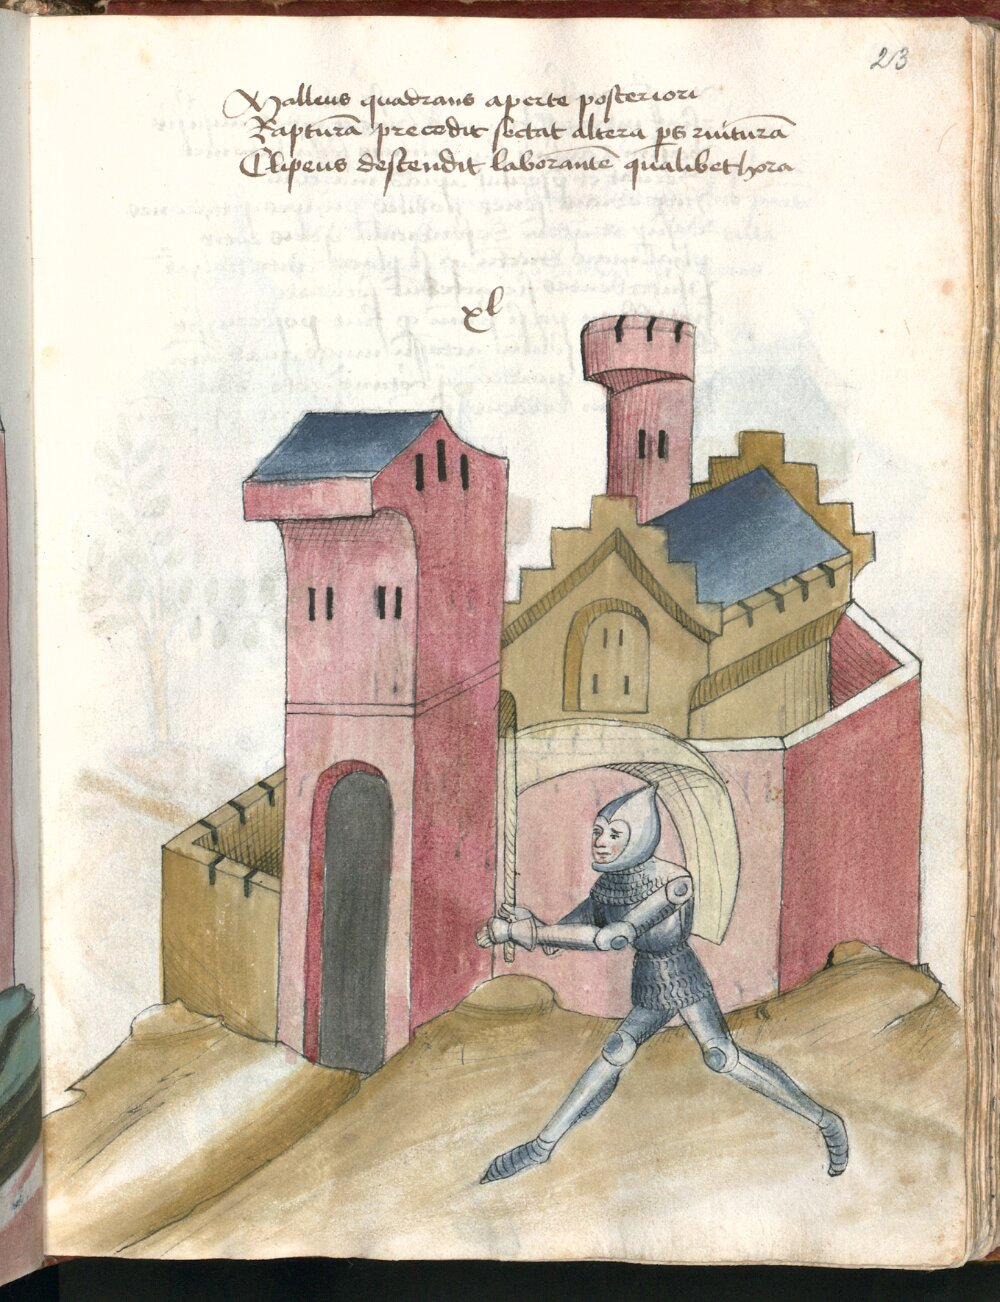 23
Malleus quadrans aperte posteriori
Rapturā precedit sectat altera ps ruiturā
Clipeus descendit laborantē qualibet hora
xl